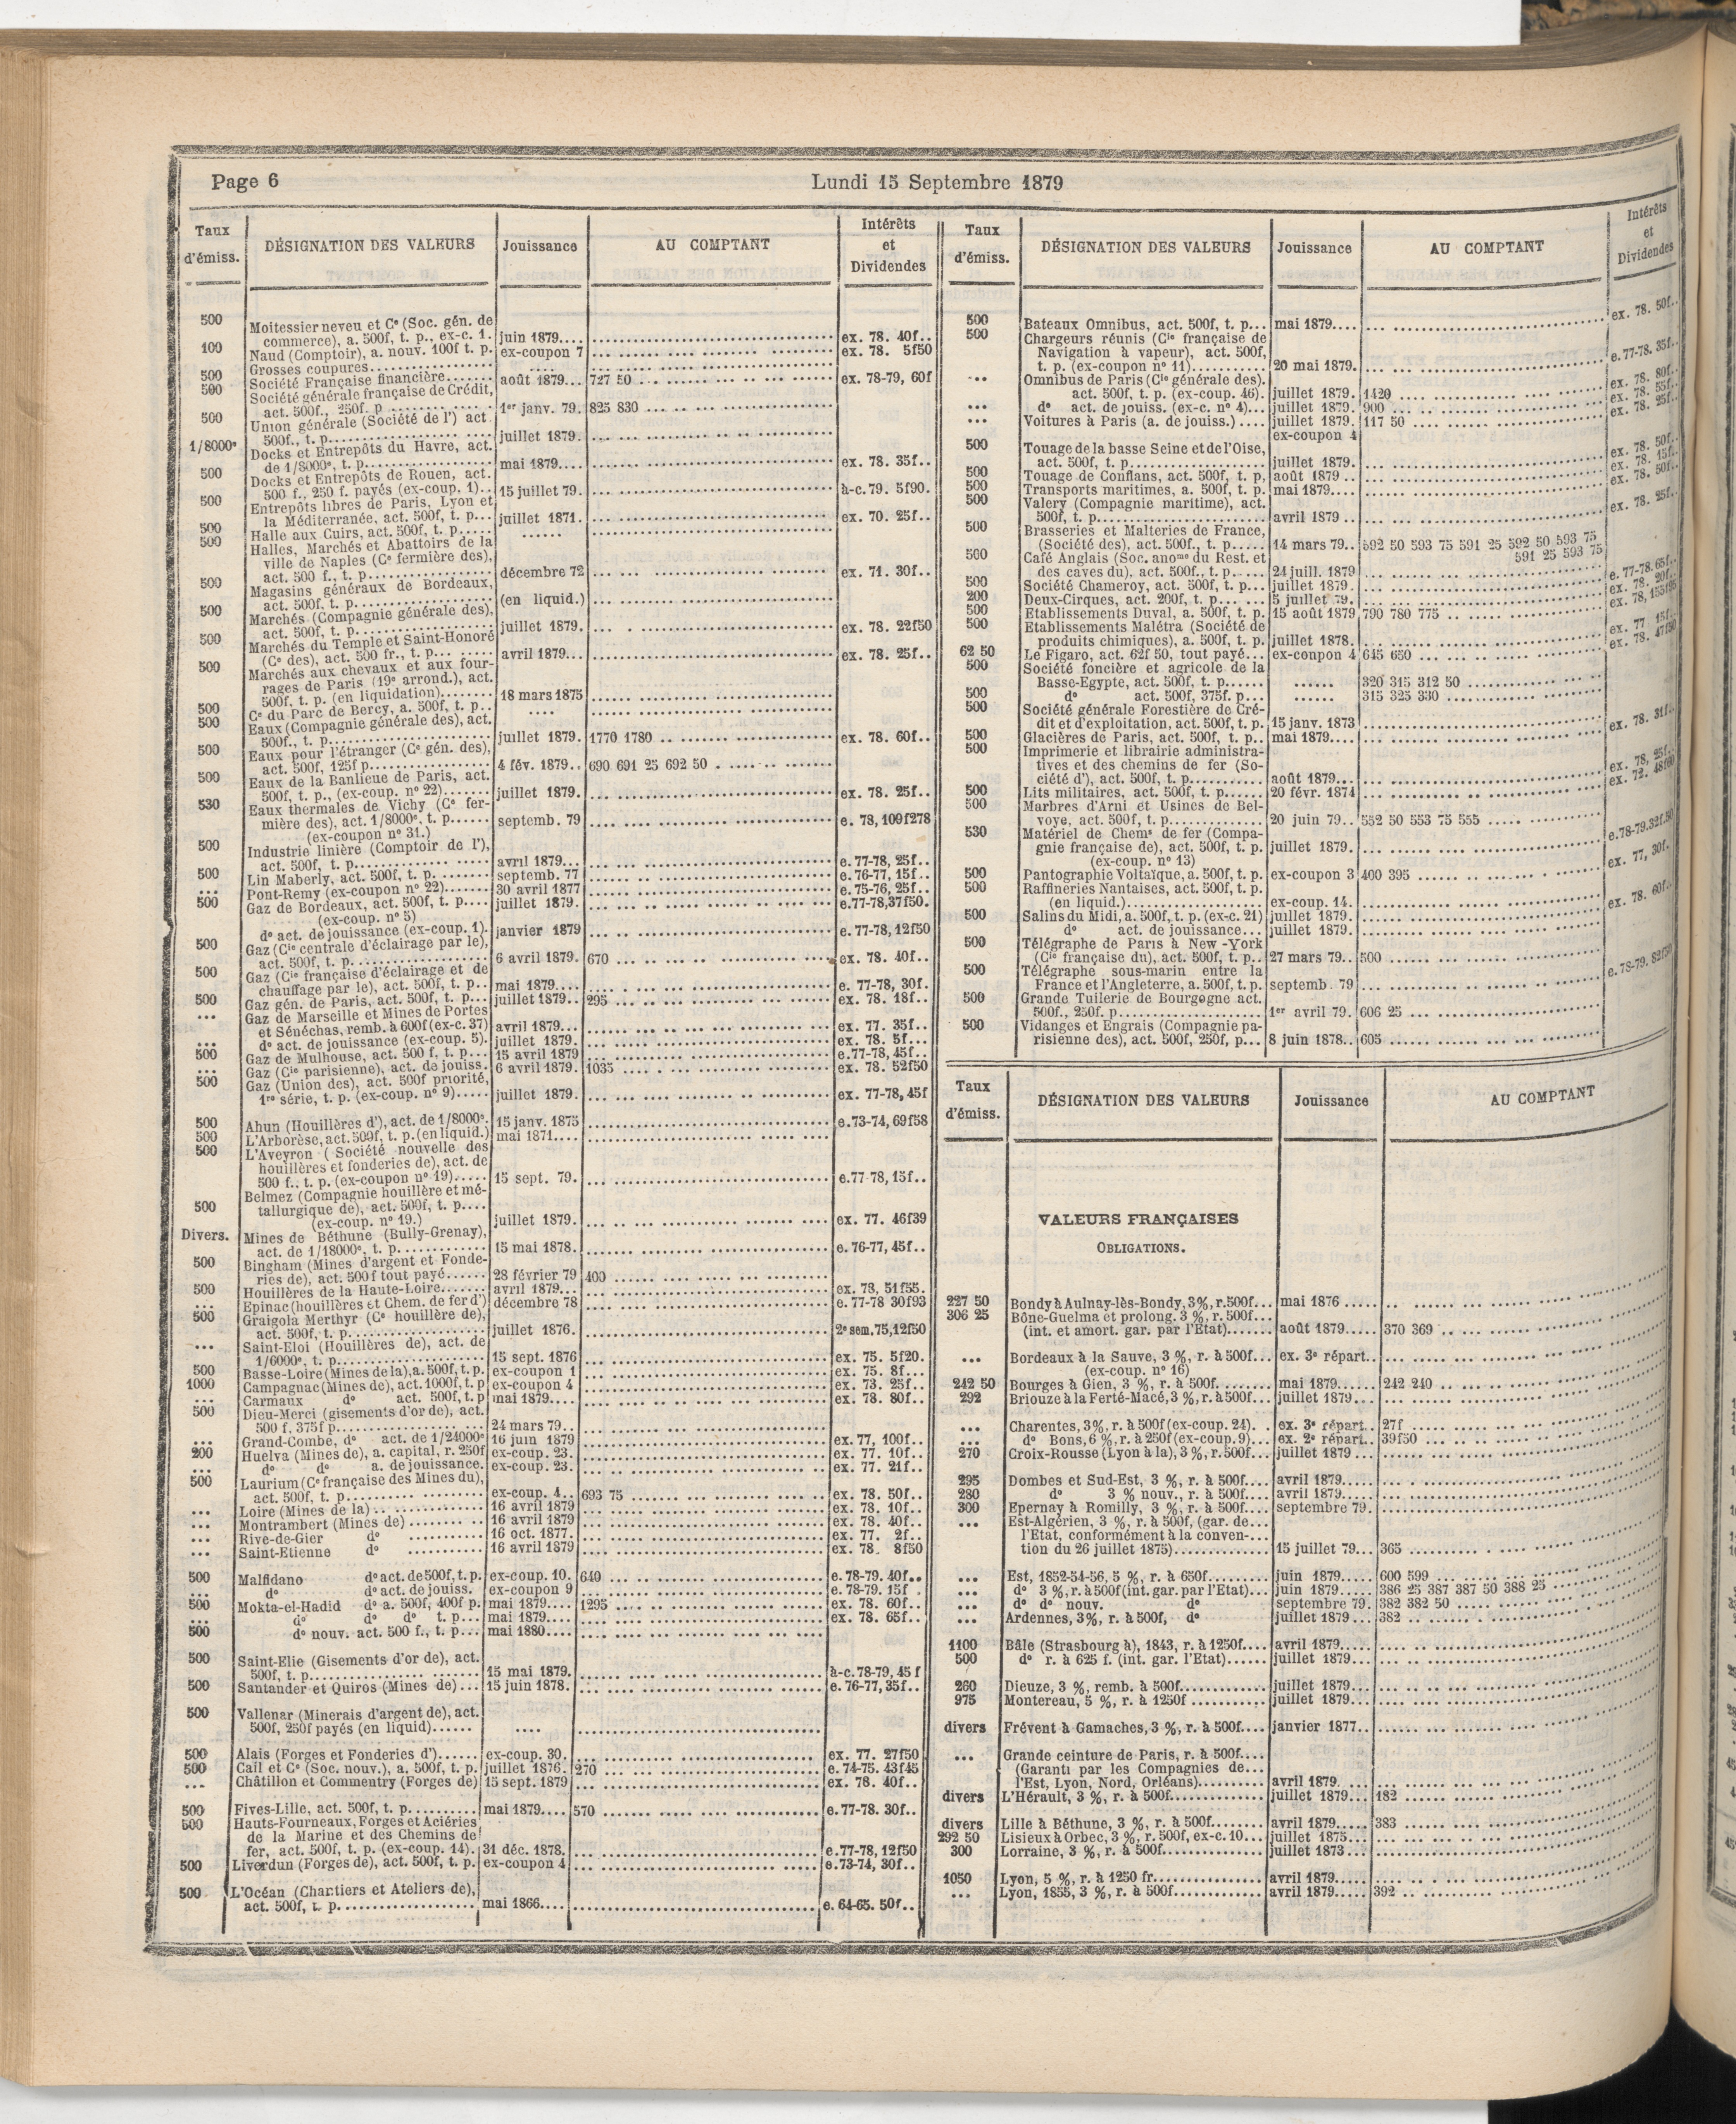 Page 6
Lundi 15 Septembre 1879
Taux d'émiss. DÉSIGNATION DES VALEURS Jouissance AU COMPTANT Intérêts et Dividendes
500 Moitessier neveu et Cᵉ (Soc. gén. de
commerce), a. 500f, t. p., ex-c. 1. juin 1879.... ex. 78. 40f..
100 Naud (Comptoir), a. nouv. 100f t. p. ex-coupon 7 ex. 78. 5f50
Grosses coupures
500 Société Française financière août 1879... 727 50 ex. 78-79, 60f
500 Société générale française de Crédit,
act. 500f., 250f. p 1ᵉʳ janv. 79. 825 830
500 Union générale (Société de l') act.
500f., t. p. juillet 1879.
1/8000ᵉ Docks et Entrepôts du Havre, act.
de 1/8000ᵉ, t. p. mai 1879.... ex. 78. 35f..
500 Docks et Entrepôts de Rouen, act.
500 f., 250 f. payés (ex-coup. 1).. 15 juillet 79. à-c. 79. 5f90.
500 Entrepôts libres de Paris, Lyon et
la Méditerranée, act. 500f, t. p... juillet 1871. ex. 70. 25f..
500 Halle aux Cuirs, act. 500f, t. p.....
500 Halles, Marchés et Abattoirs de la
ville de Naples (Cᵉ fermière des),
act. 500 f., t. p. décembre 72 ex. 71. 30f..
500 Magasins généraux de Bordeaux,
act. 500f, t. p. (en liquid.)
500 Marchés (Compagnie générale des),
act. 500f, t. p. juillet 1879. ex. 78. 22f50
500 Marchés du Temple et Saint-Honoré
(Cᵉ des), act. 500 fr., t. p... avril 1879... ex. 78. 25f..
500 Marchés aux chevaux et aux four-
rages de Paris (19ᵉ arrond.), act.
500f, t. p. (en liquidation) 18 mars 1875
500 Cᵉ du Parc de Bercy, a. 500f, t. p..
500 Eaux (Compagnie générale des), act.
500f., t. p. juillet 1879. 1770 1780 ex. 78. 60f..
500 Eaux pour l'étranger (Cᵉ gén. des),
act. 500f, 125f p. 4 fév. 1879.. 690 691 25 692 50
500 Eaux de la Banlieue de Paris, act.
500f, t. p., (ex-coup. nº 22) juillet 1879. ex. 78. 25f..
530 Eaux thermales de Vichy (Cᵉ fer-
mière des), act. 1/8000ᵉ, t. p. septemb. 79 e. 78, 109f278
(ex-coupon nº 31.)
500 Industrie linière (Comptoir de l'),
act. 500f, t. p. avril 1879... e. 77-78, 25f..
500 Lin Maberly, act. 500f, t. p. septemb. 77 e. 76-77, 15f..
... Pont-Remy (ex-coupon nº 22) 30 avril 1877 e. 75-76, 25f..
500 Gaz de Bordeaux, act. 500f, t. p.... juillet 1879. e.77-78,37f50.
(ex-coup. nº 5)
dº act. de jouissance (ex-coup. 1). janvier 1879 e. 77-78, 12f50
500 Gaz (Cⁱᵉ centrale d'éclairage par le),
act. 500f, t. p. 6 avril 1879. 670 ex. 78. 40f..
500 Gaz (Cⁱᵉ française d'éclairage et de
chauffage par le), act. 500f, t. p.. mai 1879.... e. 77-78, 30f.
500 Gaz gén. de Paris, act. 500f, t. p... juillet 1879.. 295 ex. 78. 18f..
... Gaz de Marseille et Mines de Portes
et Sénéchas, remb. à 600f (ex-c. 37) avril 1879... ex. 77. 35f..
... dº act. de jouissance (ex-coup. 5). juillet 1879. ex. 78. 5f...
500 Gaz de Mulhouse, act. 500 f, t. p... 15 avril 1879 e.77-78, 45f..
... Gaz (Cⁱᵉ parisienne), act. de jouiss. 6 avril 1879. 1035 ex. 78. 52f50
500 Gaz (Union des), act. 500f priorité,
1ʳᵉ série, t. p. (ex-coup. nº 9) juillet 1879. ex. 77-78, 45f
500 Ahun (Houillères d'), act. de 1/8000ᵉ. 15 janv. 1875 e.73-74, 69f58
500 L'Arborèse, act. 500f, t. p. (en liquid.) mai 1871....
500 L'Aveyron (Société nouvelle des
houillères et fonderies de), act. de
500 f., t. p. (ex-coupon nº 19) 15 sept. 79. e.77-78, 15f..
Belmez (Compagnie houillère et mé-
500 tallurgique de), act. 500f, t. p....
(ex-coup. nº 19.) juillet 1879. ex. 77. 46f39
Divers. Mines de Béthune (Bully-Grenay),
act. de 1/18000ᵉ, t. p. 15 mai 1878. e. 76-77, 45f..
500 Bingham (Mines d'argent et Fonde-
ries de), act. 500 f tout payé 28 février 79 400
500 Houillères de la Haute-Loire avril 1879... ex. 78, 51f55.
... Epinac (houillères et Chem. de fer d') décembre 78 e. 77-78 30f93
500 Graigola Merthyr (Cᵉ houillère de),
act. 500f, t. p. juillet 1876. 2ᵉ sem. 75, 12f50
... Saint-Eloi (Houillères de), act. de
1/6000ᵉ, t. p. 15 sept. 1876 ex. 75. 5f20.
500 Basse-Loire (Mines de la), a. 500f, t. p. ex-coupon 1 ex. 75. 8f...
1000 Campagnac (Mines de), act. 1000f, t. p ex-coupon 4 ex. 73. 25f..
... Carmaux dº act. 500f, t. p mai 1879.... ex. 78. 80f..
500 Dieu-Merci (gisements d'or de), act.
500 f, 375f p. 24 mars 79..
... Grand-Combe, dº act. de 1/24000ᵉ 16 juin 1879 ex. 77, 100f..
200 Huelva (Mines de), a. capital, r. 250f ex-coup. 23. ex. 77. 10f..
... dº dº a. de jouissance. ex-coup. 23. ex. 77. 21f..
500 Laurium (Cᵉ française des Mines du),
act. 500f, t. p. ex-coup. 4.. 693 75 ex. 78. 50f..
... Loire (Mines de la) 16 avril 1879 ex. 78. 10f..
... Montrambert (Mines de) 16 avril 1879 ex. 78. 40f..
... Rive-de-Gier dº 16 oct. 1877. ex. 77. 2f..
... Saint-Etienne dº 16 avril 1879 ex. 78. 8f50
500 Malfidano dº act. de 500f, t. p. ex-coup. 10. 640 e. 78-79. 40f..
... dº dº act. de jouiss. ex-coupon 9 e. 78-79. 15f .
500 Mokta-el-Hadid dº a. 500f, 400f p. mai 1879.... 1295 ex. 78. 60f..
... dº dº dº t. p... mai 1879.... ex. 78. 65f..
500 dº nouv. act. 500 f., t. p... mai 1880....
500 Saint-Elie (Gisements d'or de), act.
500f, t. p. 15 mai 1879. à-c. 78-79, 45 f
500 Santander et Quiros (Mines de)... 15 juin 1878. e. 76-77, 35f..
500 Vallenar (Minerais d'argent de), act.
500f, 250f payés (en liquid)
500 Alais (Forges et Fonderies d') ex-coup. 30. ex. 77. 27f50
500 Cail et Cᵉ (Soc. nouv.), a. 500f, t. p. juillet 1876. 270 e. 74-75. 43f45
... Châtillon et Commentry (Forges de) 15 sept. 1879 ex. 78. 40f..
500 Fives-Lille, act. 500f, t. p. mai 1879.... 570 e.77-78. 30f..
500 Hauts-Fourneaux, Forges et Aciéries
de la Marine et des Chemins de
fer, act. 500f, t. p. (ex-coup. 14). 31 déc. 1878. e.77-78, 12f50
500 Liverdun (Forges de), act. 500f, t. p. ex-coupon 4 e.73-74, 30f..
500 L'Océan (Chantiers et Ateliers de),
act. 500f, t. p. mai 1866.... e. 64-65. 50f..
Taux d'émiss. DÉSIGNATION DES VALEURS Jouissance AU COMPTANT Intérêts et Dividendes
500 Bateaux Omnibus, act. 500f, t. p... mai 1879.... ex. 78. 50f..
500 Chargeurs réunis (Cⁱᵉ française de
Navigation à vapeur), act. 500f,
t. p. (ex-coupon nº 11) 20 mai 1879. e. 77-78. 35f.
... Omnibus de Paris (Cⁱᵉ générale des).
act. 500f, t. p. (ex-coup. 46). juillet 1879. 1420 ex. 78. 80f..
... dº act. de jouiss. (ex-c. nº 4)... juillet 1879. 900 ex. 78. 55f..
... Voitures à Paris (a. de jouiss.) .... juillet 1879. 117 50 ex. 78. 25f..
ex-coupon 4
500 Touage de la basse Seine et de l'Oise,
act. 500f, t. p. juillet 1879. ex. 78. 50f..
500 Touage de Conflans, act. 500f, t. p. août 1879 .. ex. 78. 15f..
500 Transports maritimes, a. 500f, t. p. mai 1879.... ex. 78. 50f..
500 Valery (Compagnie maritime), act.
500f, t. p. avril 1879 .. ex. 78. 25f..
500 Brasseries et Malteries de France,
(Société des), act. 500f., t. p..... 14 mars 79.. 592 50 593 75 591 25 592 50 593 75
500 Café Anglais (Soc. anoᵐᵉ du Rest. et 591 25 593 75
des caves du), act. 500f., t. p..... 24 juill. 1879
500 Société Chameroy, act. 500f, t. p... juillet 1879. e. 77-78. 65f..
200 Deux-Cirques, act. 200f, t. p. 5 juillet 79. ex. 78. 20f..
500 Etablissements Duval, a. 500f, t. p. 15 août 1879 790 780 775 ex. 78,
500 Etablissements Malétra (Société de
produits chimiques), a. 500f, t. p. juillet 1878. ex. 77 15f..
62 50 Le Figaro, act. 62f 50, tout payé... ex-conpon 4 645 650 ex. 78. 47f50
500 Société foncière et agricole de la
Basse-Egypte, act. 500f, t. p...... 320 315 312 50
500 dº act. 500f, 375f. p... 315 325 330
500 Société générale Forestière de Cré-
dit et d'exploitation, act. 500f, t. p. 15 janv. 1873
500 Glacières de Paris, act. 500f, t. p.. mai 1879.... ex. 78. 31f..
500 Imprimerie et librairie administra-
tives et des chemins de fer (So-
ciété d'), act. 500f, t. p. août 1879... ex. 78, 25f..
500 Lits militaires, act. 500f, t. p. 20 févr. 1874 ex. 72. 48f60
500 Marbres d'Arni et Usines de Bel-
voye, act. 500f, t. p. 20 juin 79.. 552 50 553 75 555
530 Matériel de Chemˢ de fer (Compa-
gnie française de), act. 500f, t. p. juillet 1879. e.78-79.32f.50
(ex-coup. nº 13)
500 Pantographie Voltaïque, a. 500f, t. p. ex-coupon 3 400 395 ex. 77, 30f.
500 Raffineries Nantaises, act. 500f, t. p.
(en liquid.) ex-coup. 14.
500 Salins du Midi, a. 500f, t. p. (ex-c. 21) juillet 1879. ex. 78. 60f..
dº act. de jouissance... juillet 1879.
500 Télégraphe de Paris à New-York
(Cⁱᵉ française du), act. 500f, t. p.. 27 mars 79.. 500
500 Télégraphe sous-marin entre la
France et l'Angleterre, a. 500f, t. p. septemb. 79 e. 78-79. 82f50
500 Grande Tuilerie de Bourgogne act.
500f., 250f. p. 1ᵉʳ avril 79. 606 25
500 Vidanges et Engrais (Compagnie pa-
risienne des), act. 500f, 250f, p... 8 juin 1878.. 605
Taux d'émiss. DÉSIGNATION DES VALEURS Jouissance AU COMPTANT
VALEURS FRANÇAISES
OBLIGATIONS.
227 50 Bondy à Aulnay-lès-Bondy, 3%, r. 500f... mai 1876
306 25 Bône-Guelma et prolong. 3 %, r. 500f...
(int. et amort. gar. par l'Etat) août 1879..... 370 369
... Bordeaux à la Sauve, 3 %, r. à 500f... ex. 3ᵉ répart..
(ex-coup. nº 16)
242 50 Bourges à Gien, 3 %, r. à 500f. mai 1879...... 242 240
292 Briouze à la Ferté-Macé, 3 %, r. à 500f... juillet 1879...
... Charentes, 3%, r. à 500f (ex-coup. 24). . ex. 3ᵉ répart.. 27f
... dº Bons, 6 %, r. à 250f (ex-coup. 9)... ex. 2ᵉ répart.. 39f50
270 Croix-Rousse (Lyon à la), 3 %, r. 500f... juillet 1879 ...
295 Dombes et Sud-Est, 3 %, r. à 500f.... avril 1879.....
280 dº 3 % nouv., r. à 500f.... avril 1879.....
300 Epernay à Romilly, 3 %, r. à 500f.... septembre 79.
... Est-Algérien, 3 %, r. à 500f, (gar. de...
l'Etat, conformément à la conven-...
tion du 26 juillet 1875) 15 juillet 79... 365
... Est, 1852-54-56, 5 %, r. à 650f...... juin 1879...... 600 599
... dº 3 %, r. à 500f (int. gar. par l'Etat)... juin 1879 ..... 386 25 387 387 50 388 25
... dº dº nouv. dº septembre 79. 382 382 50
... Ardennes, 3%, r. à 500f, dº juillet 1879 ... 382
1100 Bâle (Strasbourg à), 1843, r. à 1250f.... avril 1879.....
500 dº r. à 625 f. (int. gar. l'Etat) juillet 1879...
260 Dieuze, 3 %, remb. à 500f. juillet 1879...
975 Montereau, 5 %, r. à 1250f juillet 1879...
divers Frévent à Gamaches, 3 %, r. à 500f.... janvier 1877..
... Grande ceinture de Paris, r. à 500f....
(Garanti par les Compagnies de...
l'Est, Lyon, Nord, Orléans) avril 1879.
divers L'Hérault, 3 %, r. à 500f. juillet 1879... 182
divers Lille à Béthune, 3 %, r. à 500f. avril 1879..... 383
292 50 Lisieux à Orbec, 3 %, r. 500f, ex-c. 10... juillet 1875...
300 Lorraine, 3 %, r. à 500f. juillet 1873 ...
1050 Lyon, 5 %, r. à 1250 fr. avril 1879.....
... Lyon, 1855, 3 %, r. à 500f. avril 1879..... 392